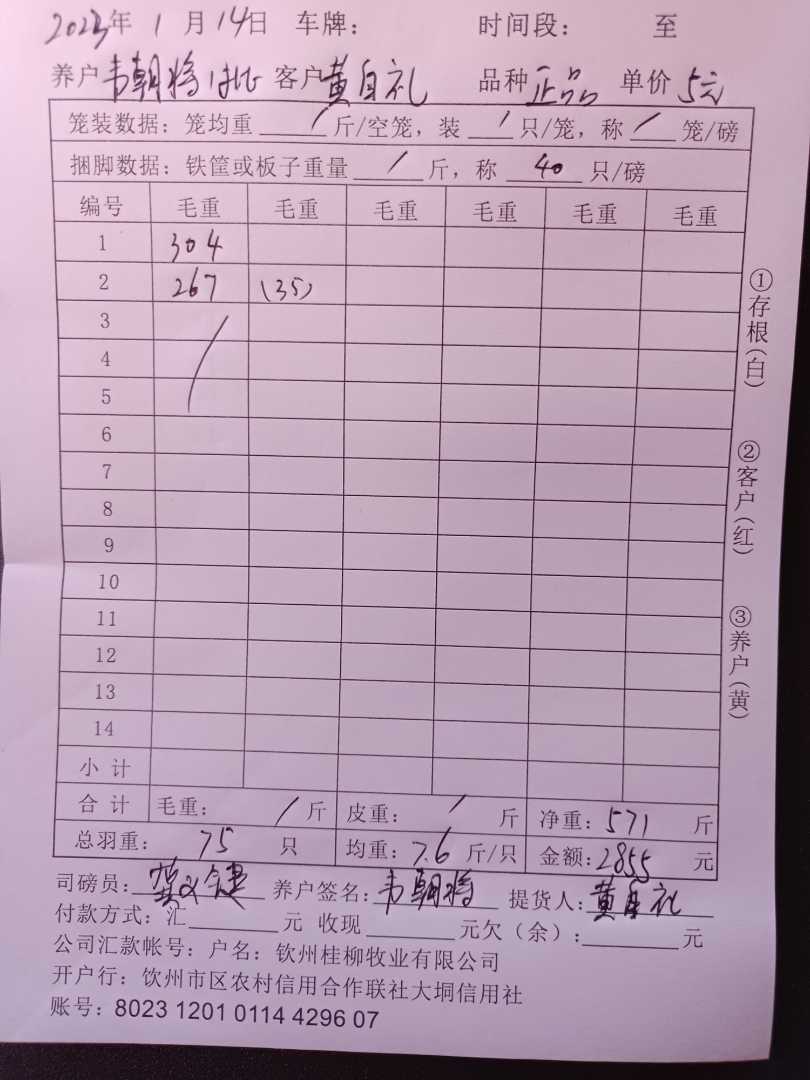 2023年 1 月 14日 车牌: 时间段: 至
养户韦朝将 1批 客户黄自礼 品种 正品 单价 5元
笼装数据: 笼均重 / 斤/空笼, 装 / 只/笼, 称 / 笼/磅
捆脚数据: 铁筐或板子重量 / 斤, 称 40 只/磅
编号 毛重 毛重 毛重 毛重 毛重 毛重
1 304
2 267 (35)
3
4
5
6
7
8
9
10
11
12
13
14
小 计
合 计 毛重: / 斤 皮重: / 斤 净重: 571 斤
总羽重: 75 只 均重: 7.6 斤/只 金额: 2855 元
司磅员: 养户签名: 韦朝将 提货人: 黄自礼
付款方式: 汇 元 收现 元欠(余): 元
公司汇款帐号: 户名: 钦州桂柳牧业有限公司
开户行: 饮州市区农村信用合作联社大垌信用社
账号: 8023 1201 0114 4296 07
①存根(白)
②客户(红)
③养户(黄)